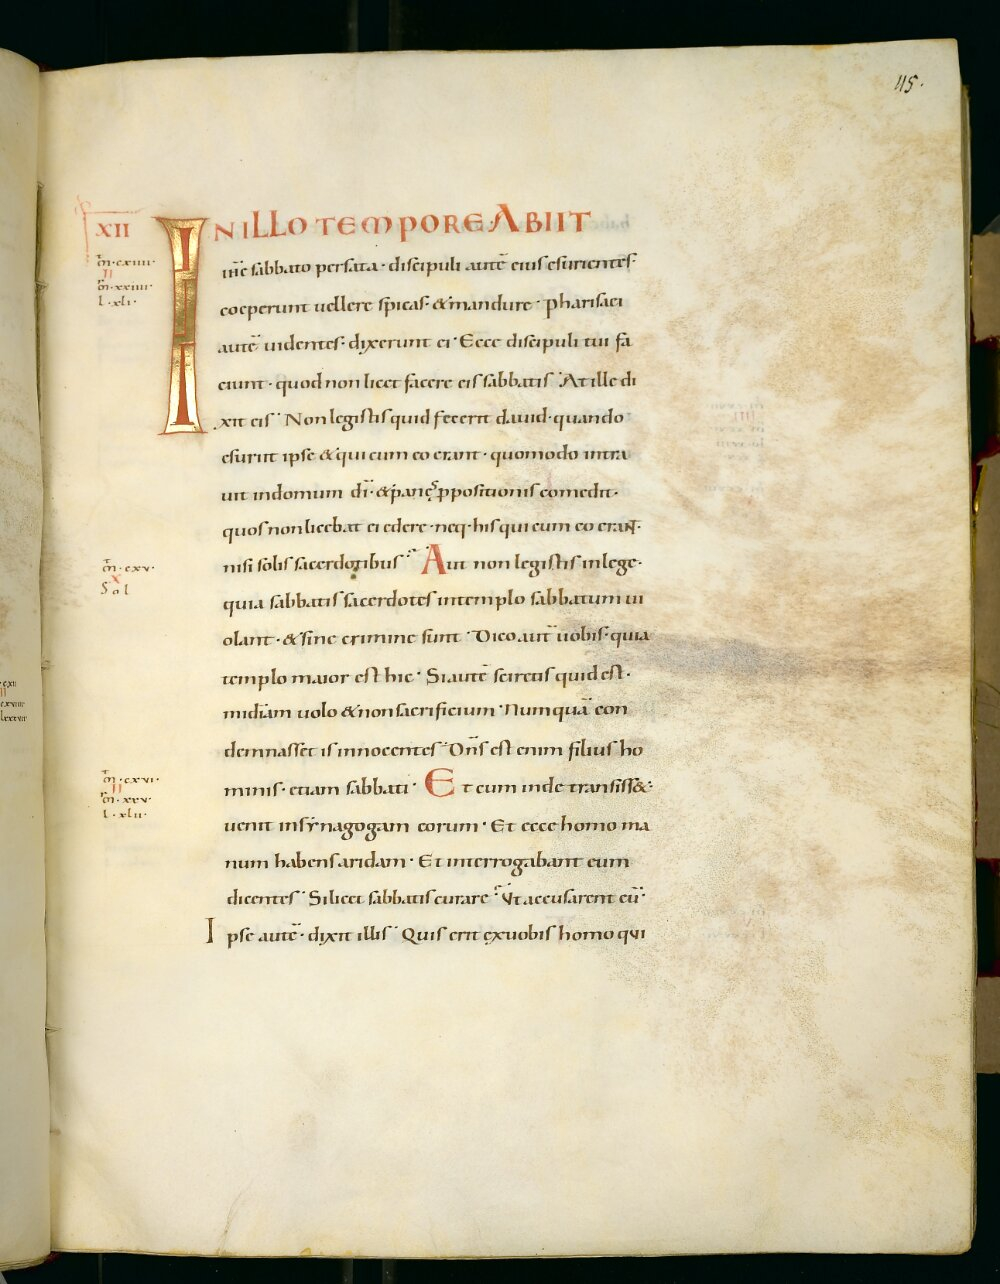 45.
XII
IN ILLO TEMPORE ABIIT
m̄·cxiiii·
II
m̄·xxiiii·
l·xli·
ih̄c sabbato persata· discipuli autē eius esurientes·
coeperunt uellere spicas· &manducare· pharisaei
autē uidentes· dixerunt ei· Ecce discipuli tui fa
ciunt· quod non licet facere eis sabbatis· At ille di
xit eis· Non legistis quid fecerit dauid· quando
esuriit ipse & qui cum eo erant· quomodo intra
uit indomum dī· &panes ppositionis comedit·
quos non licebat ei edere· neq· his qui cum eo erant·
nisi solis sacerdotibus· Aut non legistis inlege·
m̄·cxv·
X
Sol
quia sabbatis sacerdotes intemplo sabbatum ui
olant· & sine crimine sunt· Dico aut̄ uobis· quia
templo maior est hic· Si autē sciretis quid est·
midiam uolo & non sacrificium· Numquā con
demnassēt is innocentes· Dn̄s est enim filius ho
minis· etiam sabbati· Et cum inde transiss&·
m̄·cxvi·
II
m̄·xxv·
l·xlii·
uenit insynagogam eorum· Et ecce homo ma
num habens aridam· Et interrogabant eum
dicentes· Si licet sabbatis curare· Vt accusarent eū·
Ipse autē· dixit illis· Quis erit exuobis homo qui